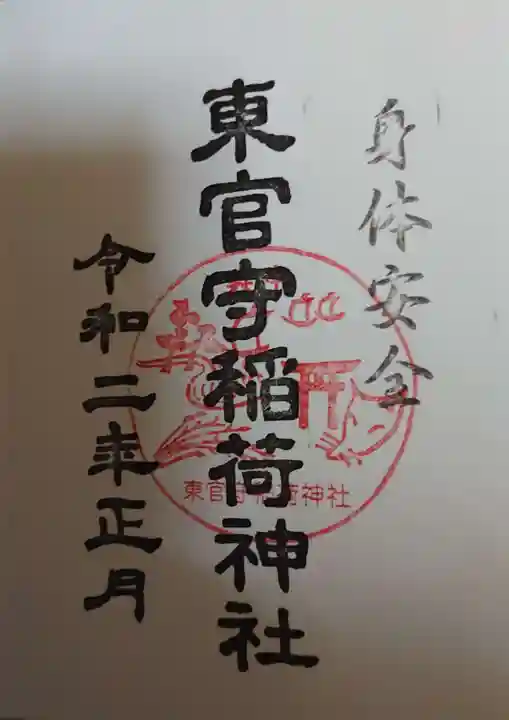 身体安全
東官守稲荷神社
令和二年正月
東官守稲荷神社